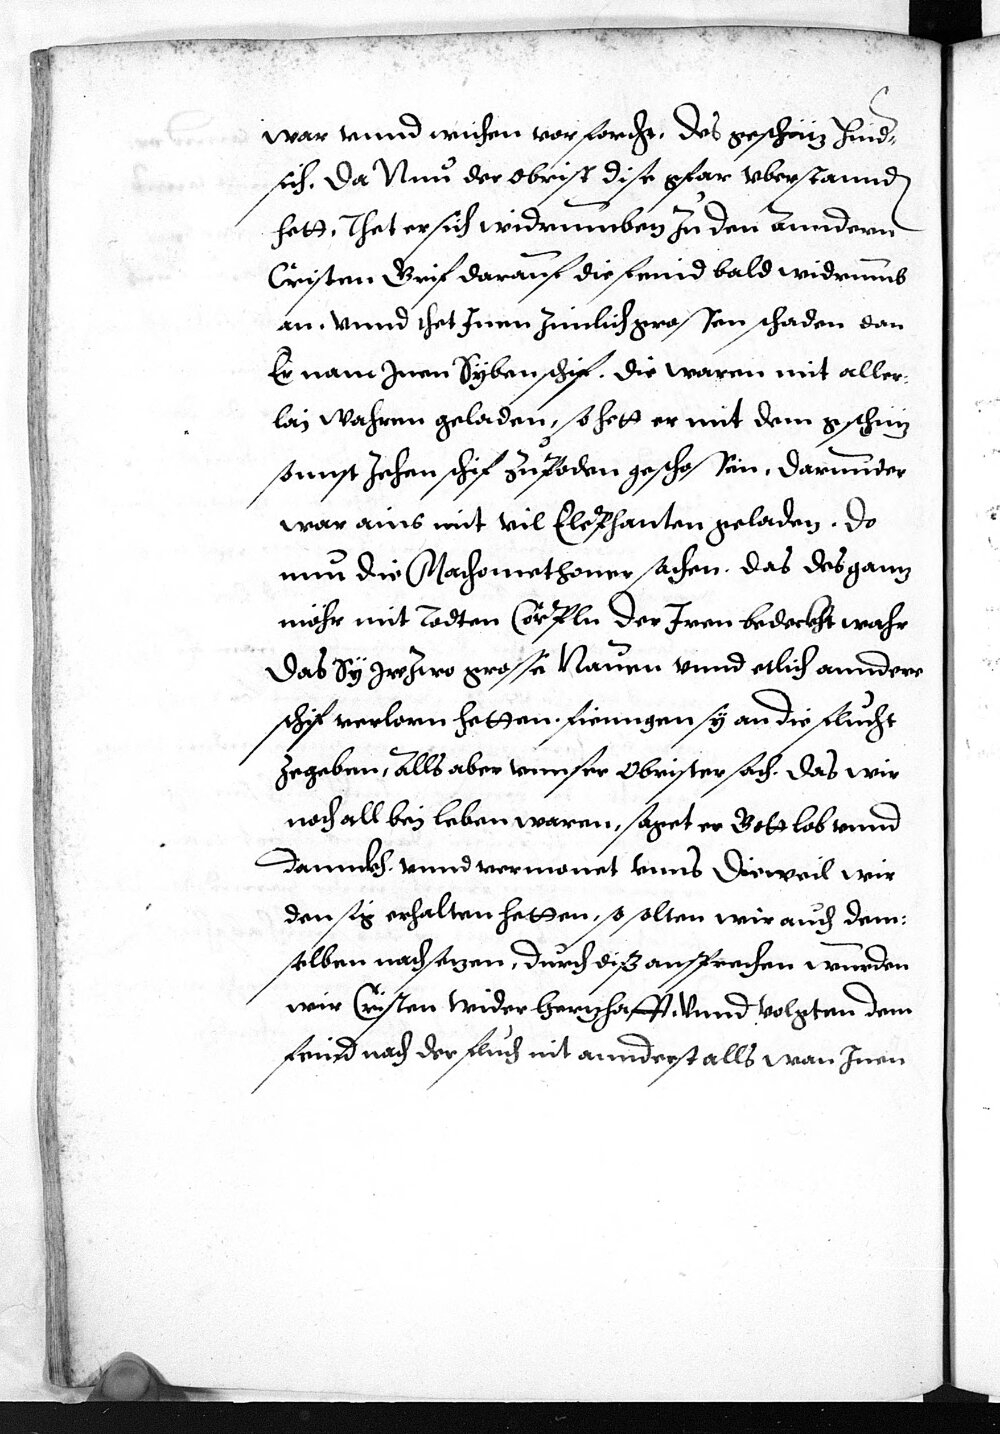 war vnnd wichen vor forcht, des geschüz hind-
sich. Da Nun der obrist dise gfar vberstannd
hett, Thet er sich widrumben Zu den anndern
Cristen Grif darauf die feind bald widrumb
an. vnnd thet Inen Zimlich grossen schaden dan
Er nam Inen Syben schif. die waren mit aller-
laj wahren geladen, so hett er mit dem gschüz
sunst Zehen schif Zu Poden geschossen, darunder
war ains mit vil Elephanten geladen. Do
nun die Machomethaner sachen. das des ganz
möhr mit Todten Cörpln der Iren bedeckht wahr
Das Sy Irer Zwo grosse Nauen vnnd etlich anndere
schif verlorn hetten. fienngen sy an die flucht
Zegeben, Alls aber vnnser Obrister sach. das wir
noch all bej leben waren, saget er Gott lob vnnd
dannckh. vnnd vermonet vnns Dieweil wir
den sig erhalten hetten, so solten wir auch dem-
selben nachsezen, durch diß ansprechen wurden
wir Cristen wider herzhafft, vnnd volgten dem
feind nach der fluch nit annderst alls wan Inen